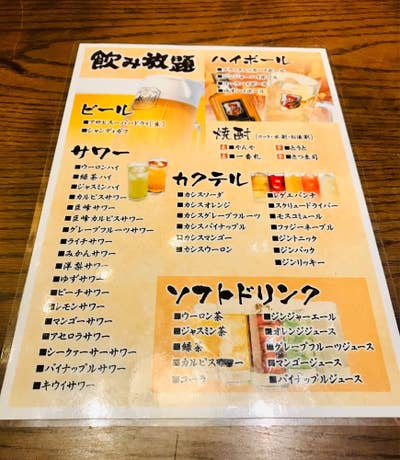 飲み放題
ビール
■アサヒスーパードライ(生)
■シャンディガフ
サワー
■ウーロンハイ
■緑茶ハイ
■ジャスミンハイ
■カルピスサワー
■巨峰サワー
■巨峰カルピスサワー
■グレープフルーツサワー
■ライチサワー
■みかんサワー
■洋梨サワー
■ゆずサワー
■ピーチサワー
■レモンサワー
■マンゴーサワー
■アセロラサワー
■シークァーサーサワー
■パイナップルサワー
■キウイサワー
ハイボール
焼酎
■一番札
カクテル
■カシスソーダ
■カシスオレンジ
■カシスグレープフルーツ
■カシスパイナップル
■カシスマンゴー
■カシスウーロン
■レゲエパンチ
■スクリュードライバー
■モスコミュール
■ファジーネーブル
■ジントニック
■ジンバック
■ジンリッキー
ソフトドリンク
■ウーロン茶
■ジャスミン茶
■緑茶
■コーラ
■ジンジャーエール
■オレンジジュース
■グレープフルーツジュース
■マンゴージュース
■パイナップルジュース